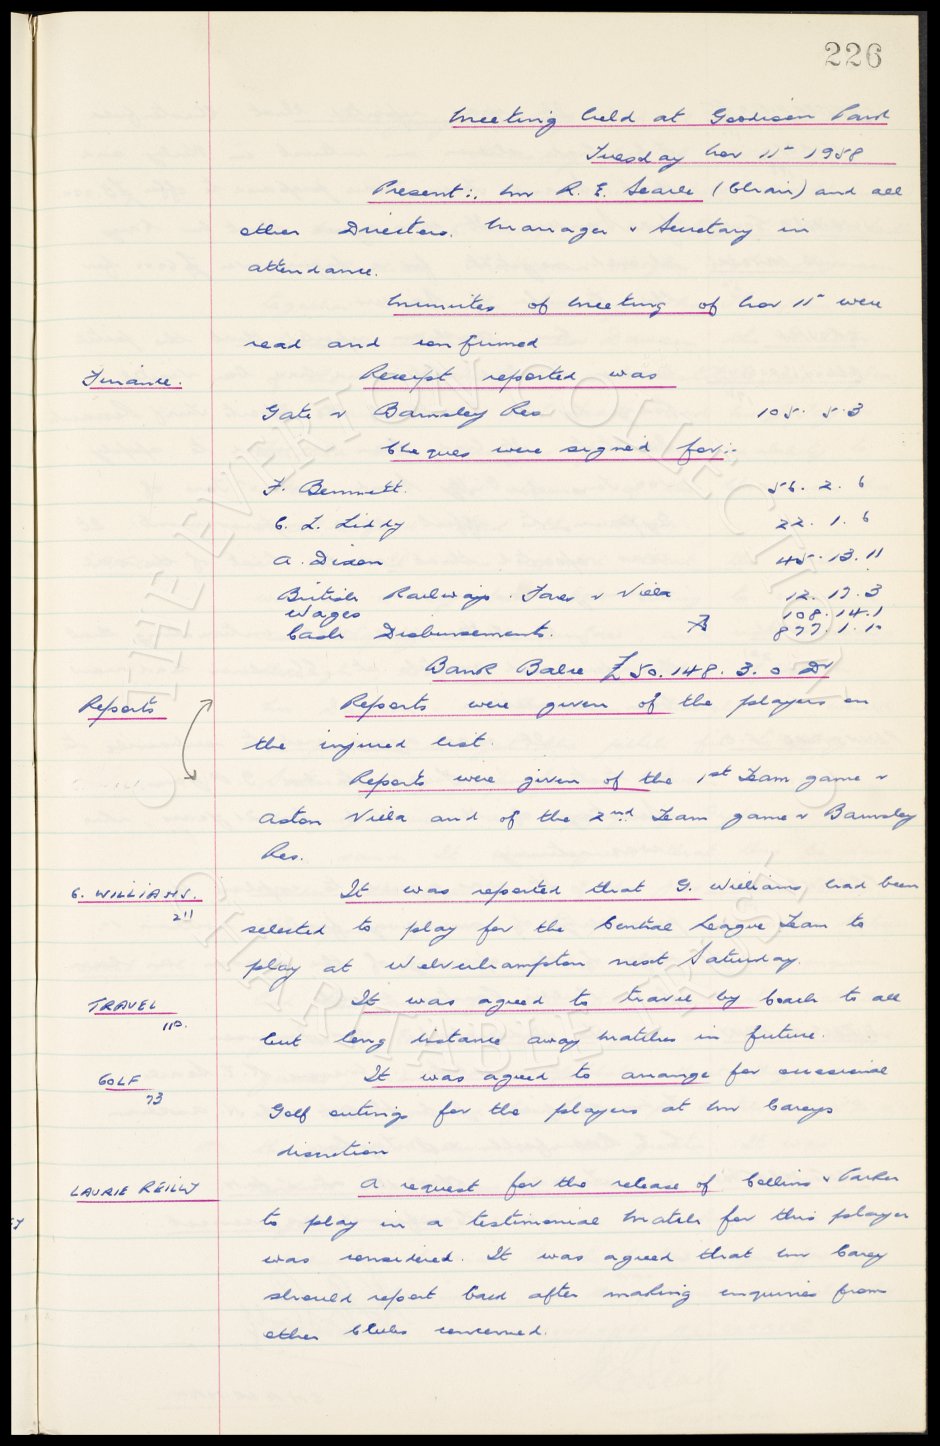 226
Meeting held at Goodison Park
Tuesday Nov 11th 1958
Present:. Mr R. E. Searle (Chair) and all
other Directors. Manager & Secretary in
attendance.
Minutes of Meeting of Nov 11th were
read and confirmed
Finance. Receipt reported was
Gate v Barnsley Res 105. 5. 3
Cheques were signed for:-
F. Bennett. 56. 2. 6
C. L. Liddy 22. 1. 6
A. Dixon 45. 13. 11
British Railways. Fares v Villa 12. 17. 3
Wages 108. 14. 1
Cash Disbursements. 877. 1. 10
Bank Balce £50.148. 3. 0 Dr
Reports Reports were given of the players on
the injured list.
Reports were given of the 1st Team game v
Aston Villa and of the 2nd Team game v Barnsley
Res.
G. WILLIAMS. It was reported that G. Williams had been
211
selected to play for the Central League Team to
play at Wolverhampton next Saturday.
TRAVEL It was agreed to travel by Coach to all
110.
but long distance away Matches in future.
GOLF It was agreed to arrange for occasional
73
Golf outings for the players at Mr Careys
discretion
LAURIE REILLY A request for the release of Collins & Parker
to play in a testimonial Match for this player
was considered. It was agreed that Mr Carey
should report back after making enquiries from
other Clubs concerned.
THE EVERTON COLLECTION
CHARITABLE TRUST